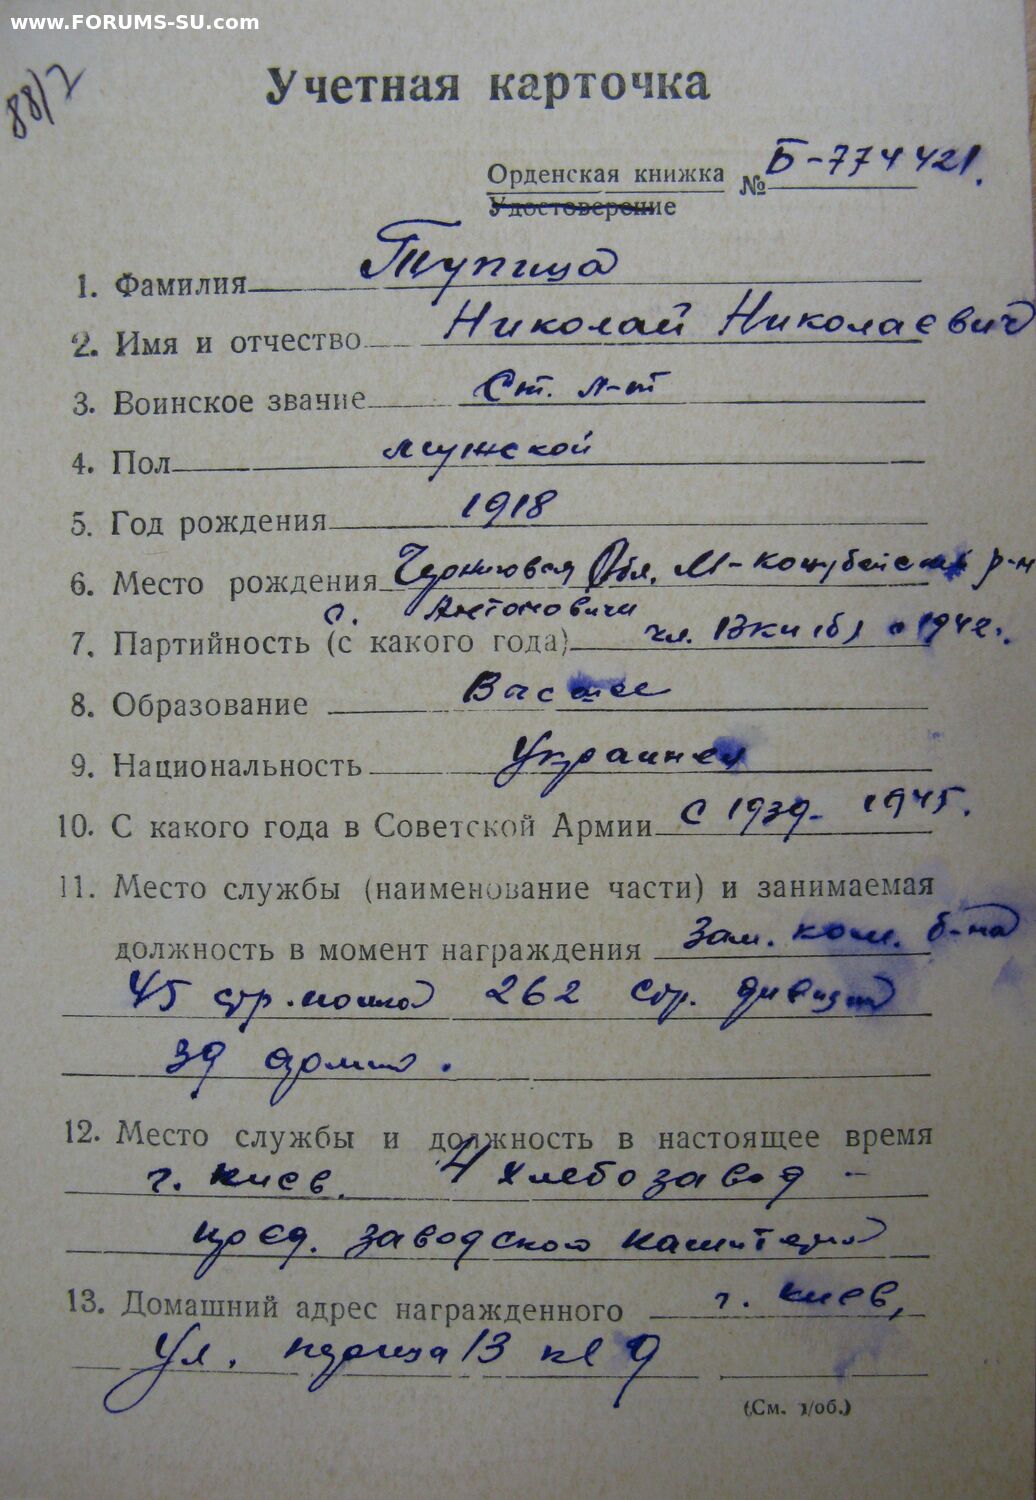 www.FORUMS-SU.com
88/2
Учетная карточка
Орденская книжка № Б-774421.
Удостоверение
1. Фамилия Тупица
2. Имя и отчество Николай Николаєвич
3. Воинское звание Ст. л-т
4. Пол мужской
5. Год рождения 1918
6. Место рождения Черниговская Обл. М-Коцубейский р-н
с. Антоновичи
7. Партийность (с какого года) чл. ВКП(б) с 1942г.
8. Образование Высшее
9. Национальность Украинец
10. С какого года в Советской Армии С 1939- 1945.
11. Место службы (наименование части) и занимаемая
должность в момент награждения Зам. ком. б-на
45 стр. полка 262 стр. дивизии
39 армии.
12. Место службы и должность в настоящее время
г. Киев. 4 хлебозавод -
пред. заводского комитета
13. Домашний адрес награжденного г. Киев,
Ул. 13 кв 9
(См. н/об.)